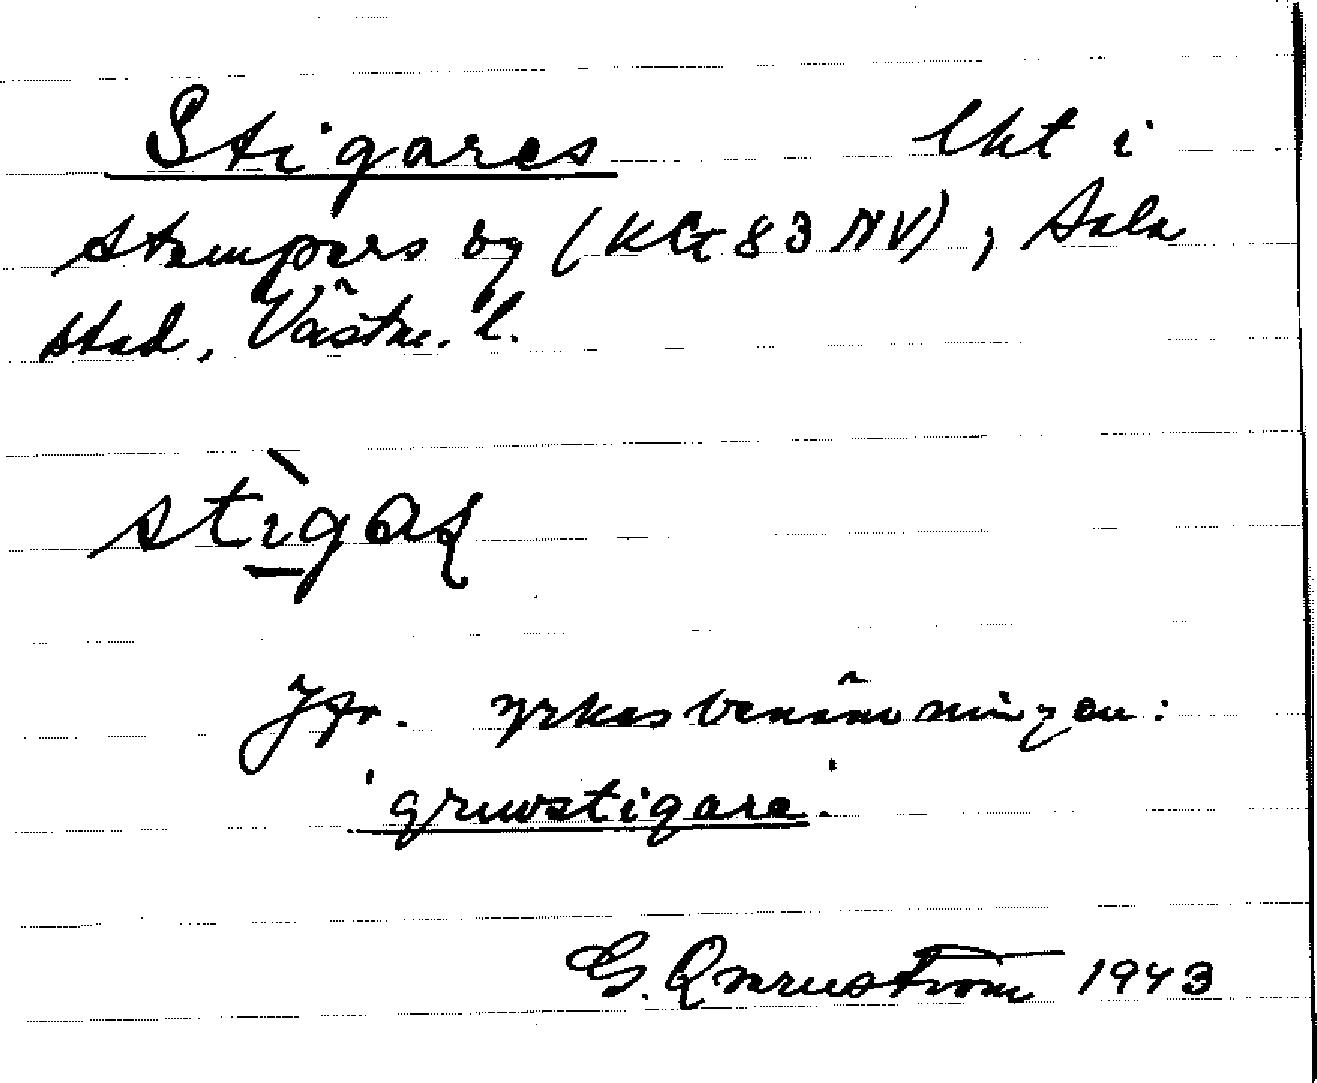 Stigares lht i
Stampers by (KG 83 NV), Sala
stad, Västm. l.
stìgas
Jfr. yrkesbenämningen:
'gruvstigare'.
G. Qvarnström 1943